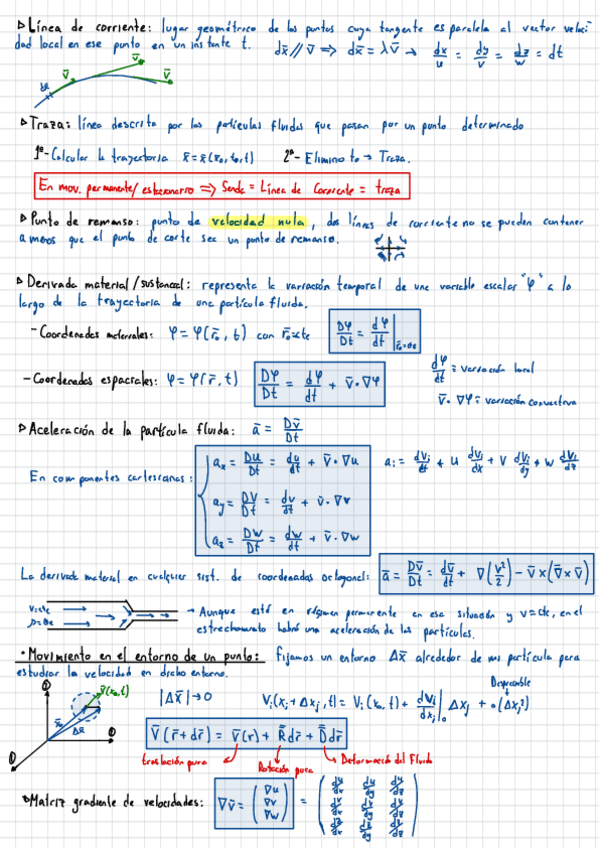 ▷ Línea de corriente: lugar geométrico de los puntos cuya tangente es paralela al vector veloci
dad local en ese punto en un instante t. dx̄ // v̄ ⇒ dx̄ = λv̄ → dx/u = dy/v = dz/w = dt
dx̄ v̄ v̄ v̄
▷ Traza: línea descrita por las partículas fluidas que pasan por un punto determinado
1º- Calcular la trayectoria x̄ = x̄(x̄₀, t₀, t) 2ª- Elimino t₀ → Traza.
En mov. permanente/estacionario ⇒ Senda = Línea de Corriente = traza
▷ Punto de remanso: punto de velocidad nula, dos líneas de corriente no se pueden contener
a menos que el punto de corte sea un punto de remanso.
▷ Derivada material/sustancial: representa la variación temporal de una variable escalar "φ" a lo
largo de la trayectoria de una partícula fluida.
- Coordenadas materiales: φ = φ(r̄₀, t) con r̄₀ = cte Dφ/Dt = dφ/dt |r̄₀=cte
- Coordenadas espaciales: φ = φ(r̄, t) Dφ/Dt = dφ/dt + v̄·∇φ
dφ/dt = variación local
v̄·∇φ = variación convectiva
▷ Aceleración de la partícula fluida: ā = Dv̄/Dt
En componentes cartesianas:
ax = Du/Dt = du/dt + v̄·∇u
ay = DV/Dt = dv/dt + v̄·∇v
az = Dw/Dt = dw/dt + v̄·∇w
ai = dVi/dt + u dVi/dx + v dVi/dy + w dVi/dz
La derivada material en cualquier sist. de coordenadas octogonal: ā = Dv̄/Dt = dv̄/dt + ∇(v²/2) - v̄×(∇̄×v̄)
V=cte
→ Aunque esté en régimen permanente en esa situación y v=cte, en el
estrechamiento habrá una aceleración de las partículas.
· Movimiento en el entorno de un punto: Fijamos un entorno Δx̄ alrededor de mi partícula para
estudiar la velocidad en dicho entorno.
Despreciable
v̄(x₀,t) x̄₀ Δx̄
|Δx̄| → 0 Vi(xi+Δxj, t) = Vi(x₀, t) + dVi/dxj|₀ Δxj + o(Δxj²)
V̄(r̄+dr̄) = v̄(r) + R̿dr̄ + D̿dr̄
traslación pura Rotación pura Deformación del fluido
▷ Matriz gradiente de velocidades: ∇v̄ = (∇u ∇v ∇w) = (du/dx du/dy du/dz
dv/dx dv/dy dv/dz
dw/dx dw/dy dw/dz)